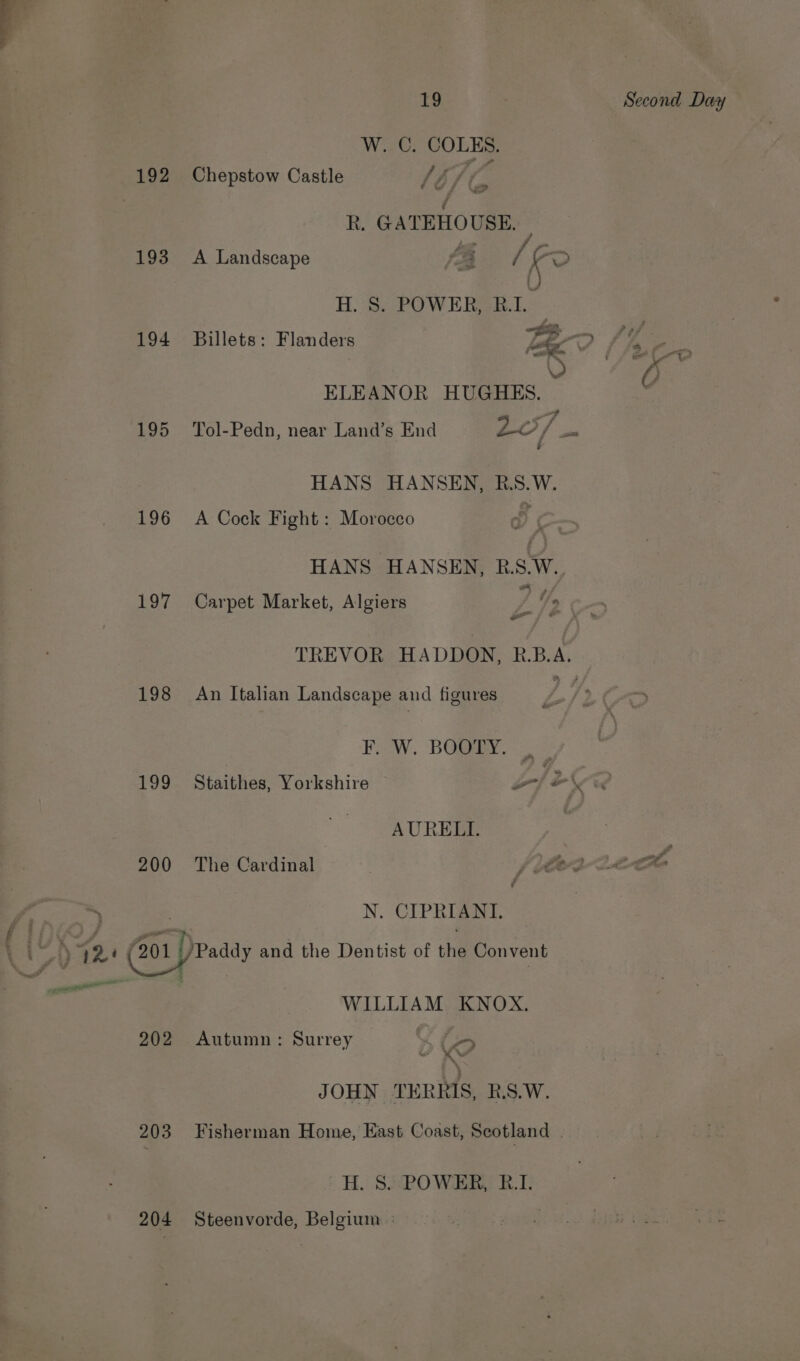 19 Second Day
W. C. COLES.
192 Chepstow Castle
R. GATEHOUSE.
193 A Landscape
H. S. POWER, R.I.
194 Billets: Flanders
ELEANOR HUGHES.
195 Tol-Pedn, near Land's End 20/-
HANS HANSEN, R.S.W.
196 A Cock Fight: Morocco
HANS HANSEN, R.S.W.
197 Carpet Market, Algiers
TREVOR HADDON, R.B.A.
198 An Italian Landscape and figures
F. W. BOOTY.
199 Staithes, Yorkshire
AURELI.
200 The Cardinal
N. CIPRIANI.
201 Paddy and the Dentist of the Convent
WILLIAM KNOX.
202 Autumn: Surrey
JOHN TERRIS, R.S.W.
203 Fisherman Home, East Coast, Scotland
H. S. POWER, R.I.
204 Steenvorde, Belgium